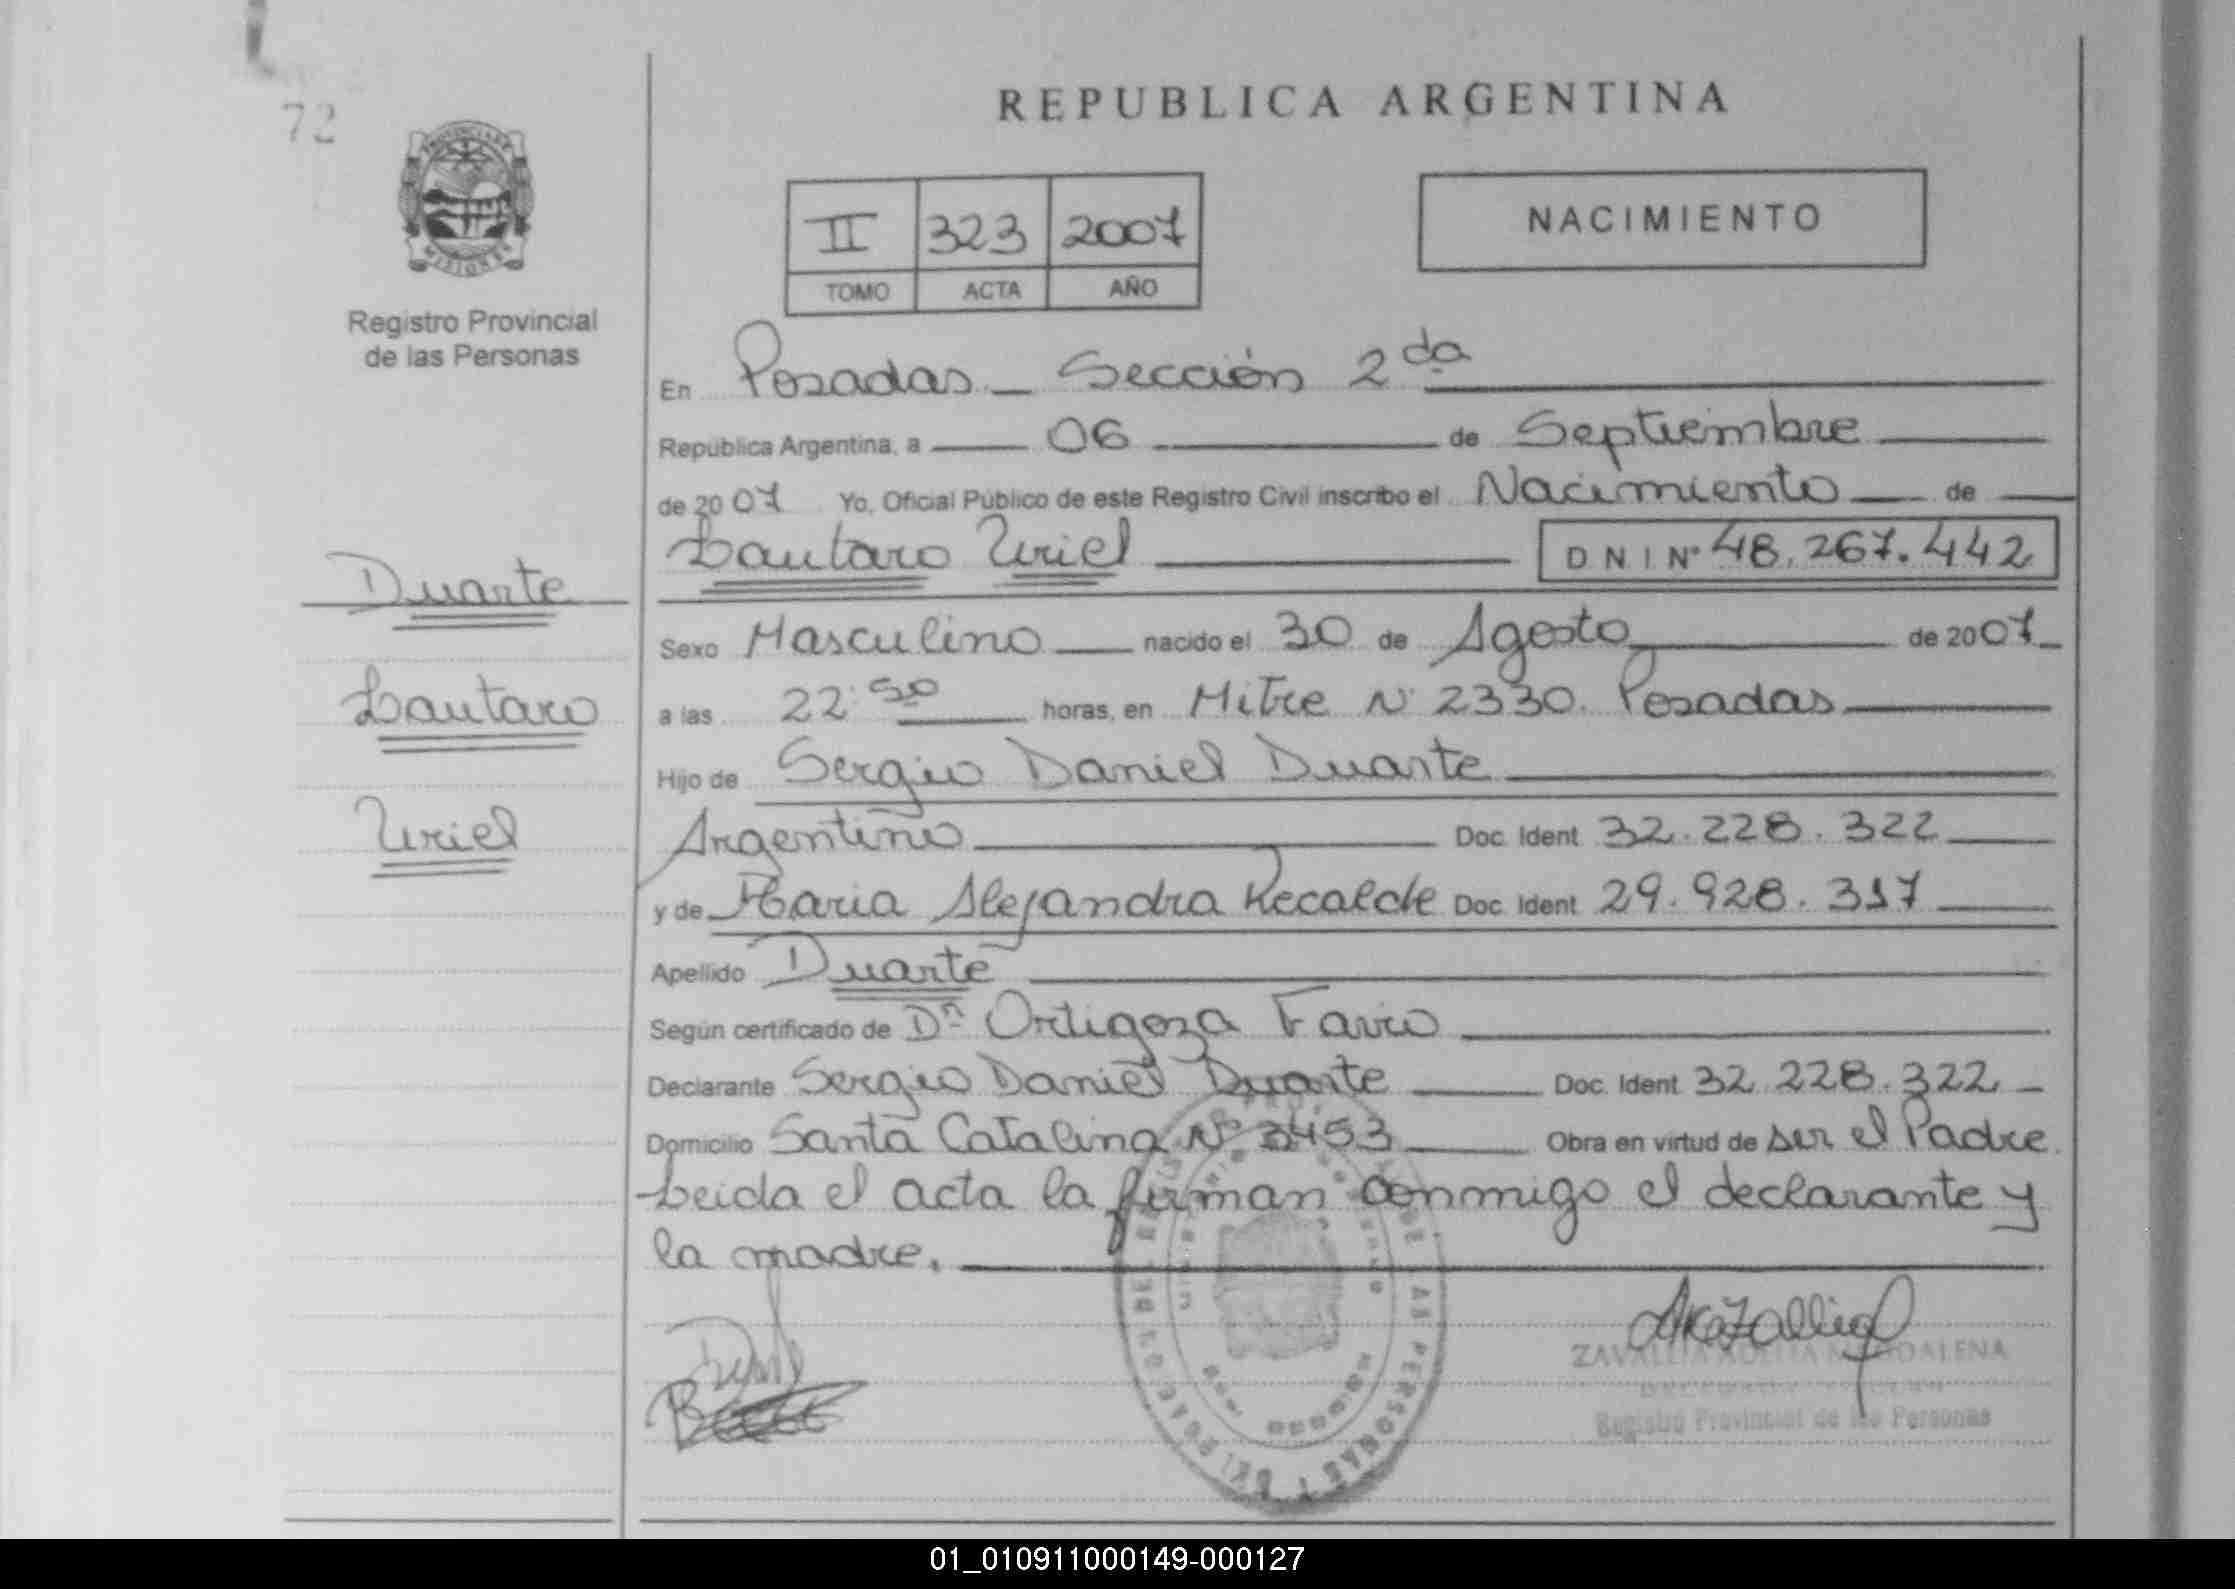 72
REPUBLICA ARGENTINA
PROVINCIA DE
MISIONES
Registro Provincial
de las Personas
II 323 2007
TOMO ACTA AÑO
NACIMIENTO
En Posadas - Sección 2da
República Argentina, a 06 de Septiembre
de 2007 Yo, Oficial Público de este Registro Civil inscribo el Nacimiento de
Lautaro Uriel DNI Nº 48.267.442
Duarte
Lautaro
Uriel
Sexo Masculino nacido el 30 de Agosto de 2007
a las 22:50 horas, en Mitre Nº 2330. Posadas
Hijo de Sergio Daniel Duarte
Argentino Doc. Ident. 32.228.322
y de Maria Alejandra Recalde Doc. Ident. 29.928.317
Apellido Duarte
Según certificado de Dn Ortigoza Favio
Declarante Sergio Daniel Duarte Doc. Ident. 32.228.322
Domicilio Santa Catalina Nº 3453 Obra en virtud de ser el Padre.
Leida el acta la firman conmigo el declarante y
la madre.
MAGDALENA
Registro Provincial de las Personas
01_010911000149-000127